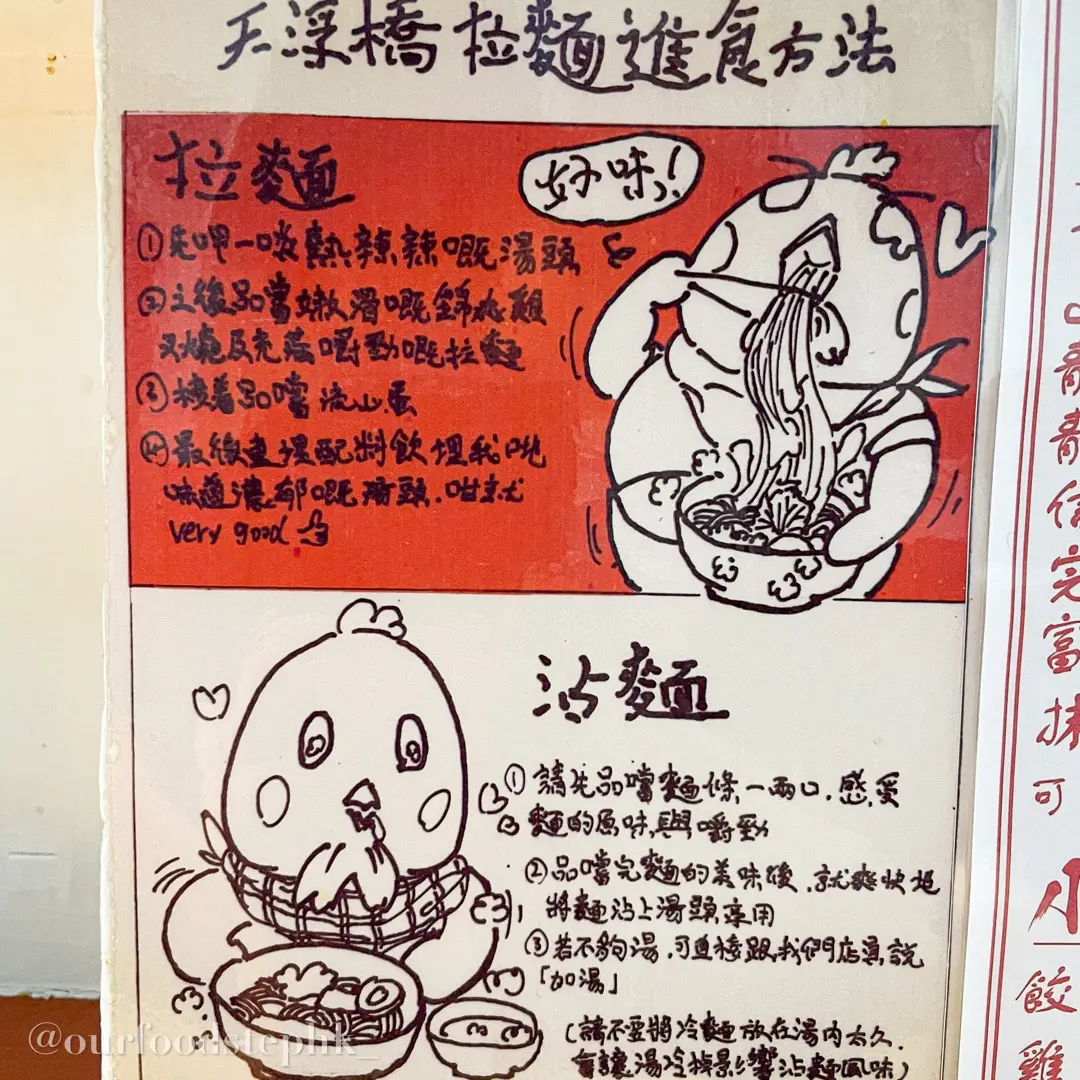 天深橋 拉麵進食方法
拉麵
好味!
①先呷一啖熱辣辣嘅湯頭
②之後品嚐嫩滑嘅錦水雞
叉燒及充滿嚼勁嘅拉麵
③接着品嚐流心蛋
④最後連埋配料飲埋我哋
味道濃郁嘅湯頭.咁就
very good
沾麵
①請先品嚐麵條一兩口.感受
麵的原味與嚼勁
②品嚐完麵的美味後.就爽快地
將麵沾上湯頭享用
③若不夠湯.可直接跟我們店員說
「加湯」
(請不要將冷麵放在湯內太久.
會讓湯冷掉影響沾麵風味)
山青青信完富抹可
小
餃
雞
@ourfoodstephk_